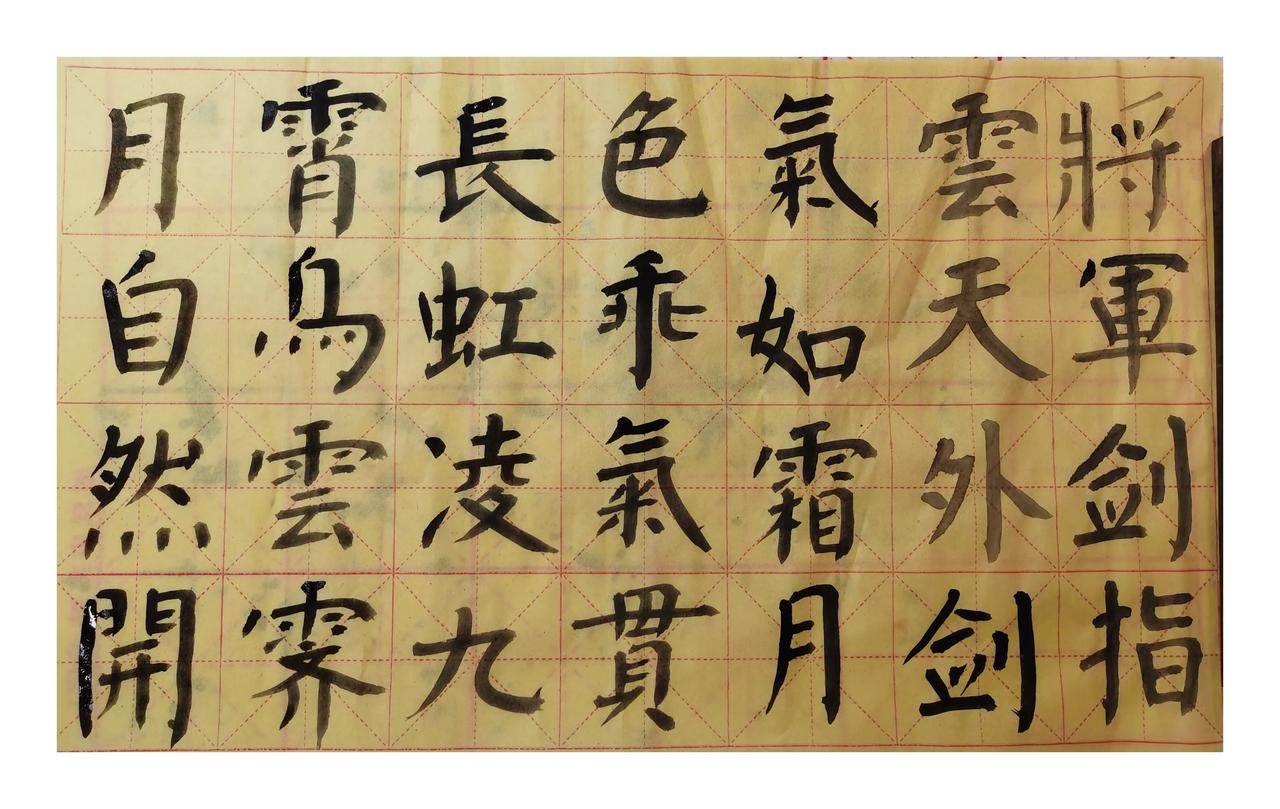 將軍剑指
雲天外剑
氣如霜月
色乖氣貫
長虹凌九
霄烏雲霁
月自然開